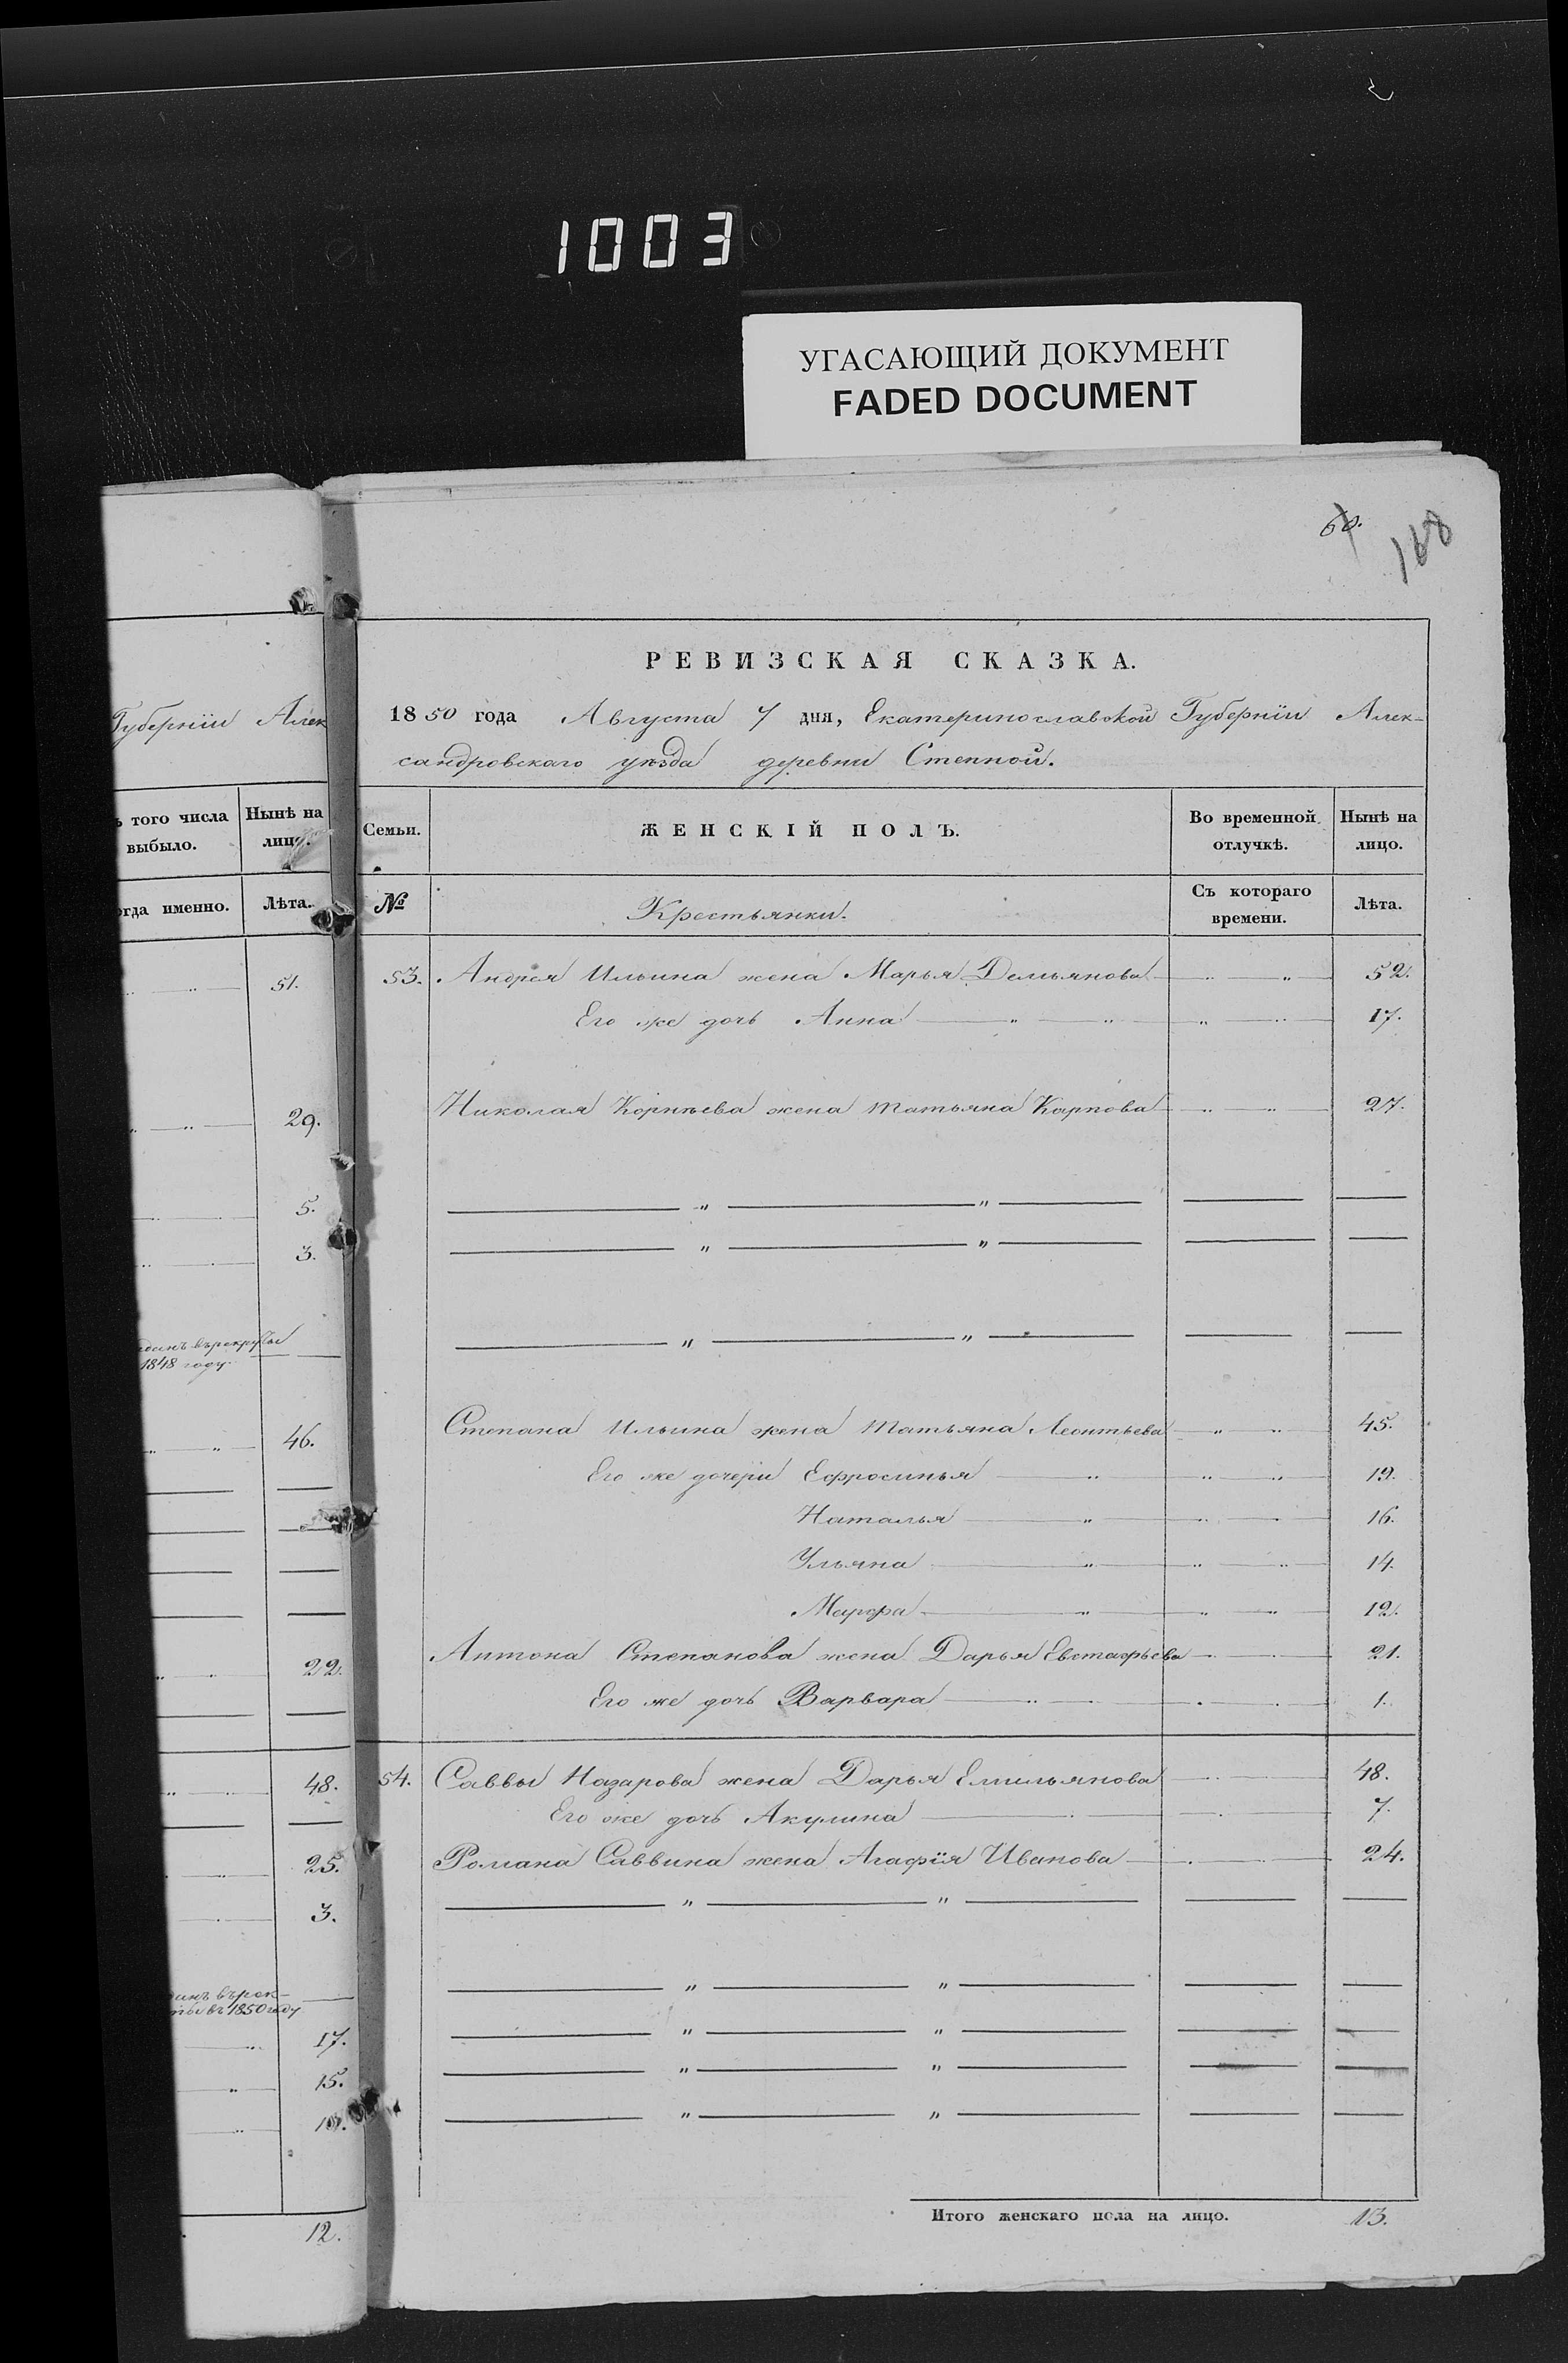 1003
УГАСАЮЩИЙ ДОКУМЕНТ
FADED DOCUMENT
60.
168
Губернiи Алек
ъ того числа выбыло. Нынѣ на лицо.
огда именно. Лѣта.
51.
29.
5.
3.
въ рекруты
1848 году
46.
22.
48.
25.
3.
въ рек-
въ 1850 году
17.
15.
12.
РЕВИЗСКАЯ СКАЗКА.
1850 года Августа 7 дня, Екатеринославской Губернiи Алек-
сандровскаго уѣзда деревни Степной.
Семьи. ЖЕНСКIЙ ПОЛЪ. Во временной отлучкѣ. Нынѣ на лицо.
№ Крестьянки. Съ котораго времени. Лѣта.
53. Андрея Ильина жена Марья Демьянова 52.
Его же дочь Анна 17.
Николая Корнѣева жена Татьяна Карпова 27.
Степана Ильина жена Татьяна Леонтьева 45.
Его же дочери Ефросинья 19.
Наталья 16.
Ульяна 14.
Марфа 12.
Антона Степанова жена Дарья Евстафьева 21.
Его же дочь Варвара 1.
54. Саввы Назарова жена Дарья Емильянова 48.
Его же дочь Акулина 7.
Романа Саввина жена Агафiя Иванова 24.
Итого женскаго пола на лицо. 13.